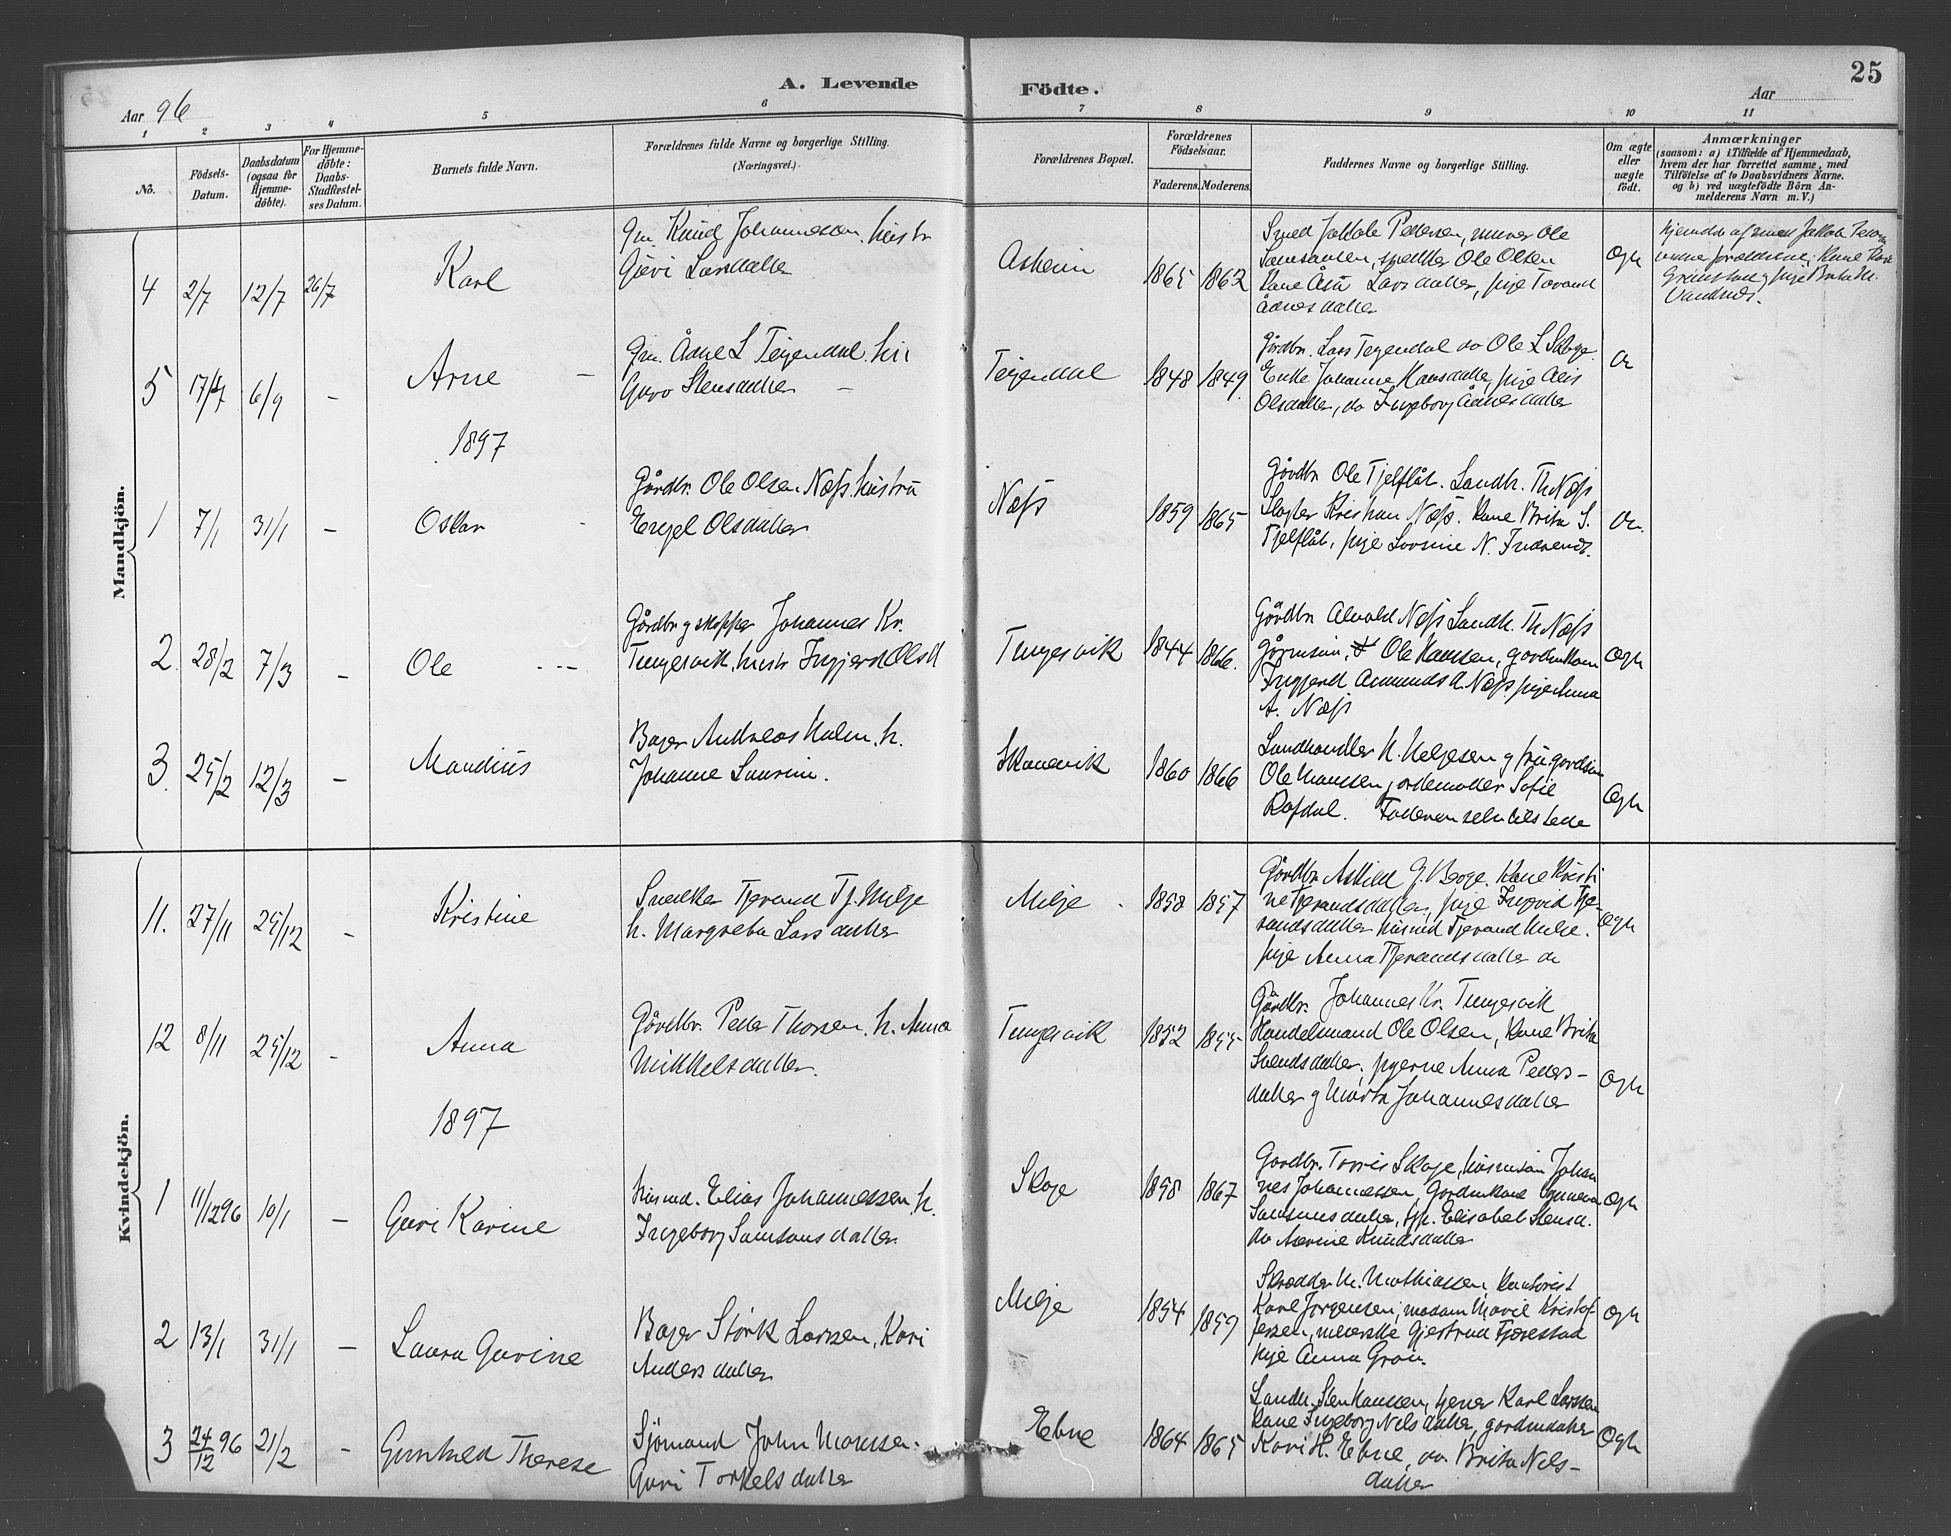 A. Levende Födte.
25
Aar 96
Aar
1 2 3 4 5 6 7 8 9 10 11
No.
Födsels-
Datum.
Daabsdatum
(ogsaa for
Hjemme-
döbte).
For Hjemme-
döbte:
Daabs-
Stadfestel-
ses Datum.
Barnets fulde Navn.
Forældrenes fulde Navne og borgerlige Stilling.
(Næringsvei.)
Forældrenes Bopæl.
Forældrenes
Födselsaar.
Faderens. Moderens.
Faddernes Navne og borgerlige Stilling.
Om ægte
eller
uægte
födt.
Anmærkninger
(saasom: a) i Tilfælde af Hjemmedaab,
hvem der har forrettet samme, med
Tilföielse af to Daabsvidners Navne.
og b) ved uægtefödte Börn An-
melderens Navn m. V.)
Mandkjön.
4 2/7 12/7 26/7 Karl
Gm. Knud Johannessen. hustr
Guri Larsdatter
Asheim 1865 1862
Smed Jakob Pedersen, murer Ole
Samsonsen, snedker Ole Olsen
Kone Åsa Larsdatter, pige Torand
Ådnesdatter
Ægte
5 17/7 6/9 - Arne -
Gm. Ådne L Teigendal. hu
Guro Stensdatter -
Teigendal 1848 1849.
Gårdbr. Lars Teigendal do Ole L Skoge.
Enke Johanne Hansdatter, pige
Olsdatter, do Ingeborg Ådnesdatter
1897
1 7/1 31/1 - Oskar -
Gårdbr. Ole Olsen Næss. hustru
Engel Olsdatter
Næss 1859 1865
Gårdbr Ole Tjelflåt. Landh. Th Næss
Slagter Kristian Næss. Kone Brita S.
Tjelflåt, pige N.
2 28/2 7/3 - Ole - - -
Gårdbr og skipper Johannes Kr.
Tungesvik, hustr Ingjerd Olsd
Tungesvik 1844 1866.
Gårdbr Næss Landh. Th Næss
Ole Hansen, gårdmkone
Ingjerd Amundsd. Næss pige Anna
A. Næss
Ægte
3 25/2 12/3 - Mandius
Bager Andreas Malm. h.
Johanne
Skonevik 1860 1866
Landhandler H. Helgesen og fru
Ole Hansen, jordemoder Sofie
Rafdal. Faderen selv tilstede
Ægte
Kvindekjön.
11. 27/11 25/12 - Kristine
Snedker Tjerand Tj. Milje
h. Margreta Larsdatter
Milje 1858 1857
Gårdbr Askild G. Berge. Kone Kristi
ne Tjerandsdatter, pige Ingrid Tje-
randsdatter husmd Tjerand Milje.
pige Anna Tjerandsdatter do
Ægte
12 8/11 25/12 - Anna
Gårdbr. Peder Thorsen. h. Anna
Mikkelsdatter.
Tungesvik 1852 1855
Gårdbr. Johannes Kr. Tungesvik
Handelsmand Ole Olsen, Kone Brita
Svendsdatter, pigerne Anna Peders-
datter og Marta Johannesdatter
Ægte
1897
1 11/12 96 10/1 - Guri Karine
Husmd. Elias Johannessen h.
Ingeborg Samsonsdatter
Skoge 1858 1867
Gårdbr. Torris Skoge, Johan
nes Johannessen, Gårdmkone
Samsonsdatter, Elisabet Stensd.
do Knudsdatter
Ægte
2 13/1 31/1 - Laura Gurine
Bager Størk Larsen, Kari
Andersdatter
Milje 1854 1859
Skrædder M. Mathiassen, Kontorist
Karl Jorgensen, madam Marie Kristof
fersen, meierske Gjertrud Fjærestad
pige Anna Gron.
Ægte
3 24/12 96 21/2 - Gunhild Therese
Sjömand John Monsen.
Guri Torkelsdatter
Ebne 1864 1865
Landh. Sten Hansen, tjener Karl Larsen
Kone Ingeborg Nilsdatter, gårdmdatter
Kari H. Ebne, do Brita Nils-
datter
Ægte